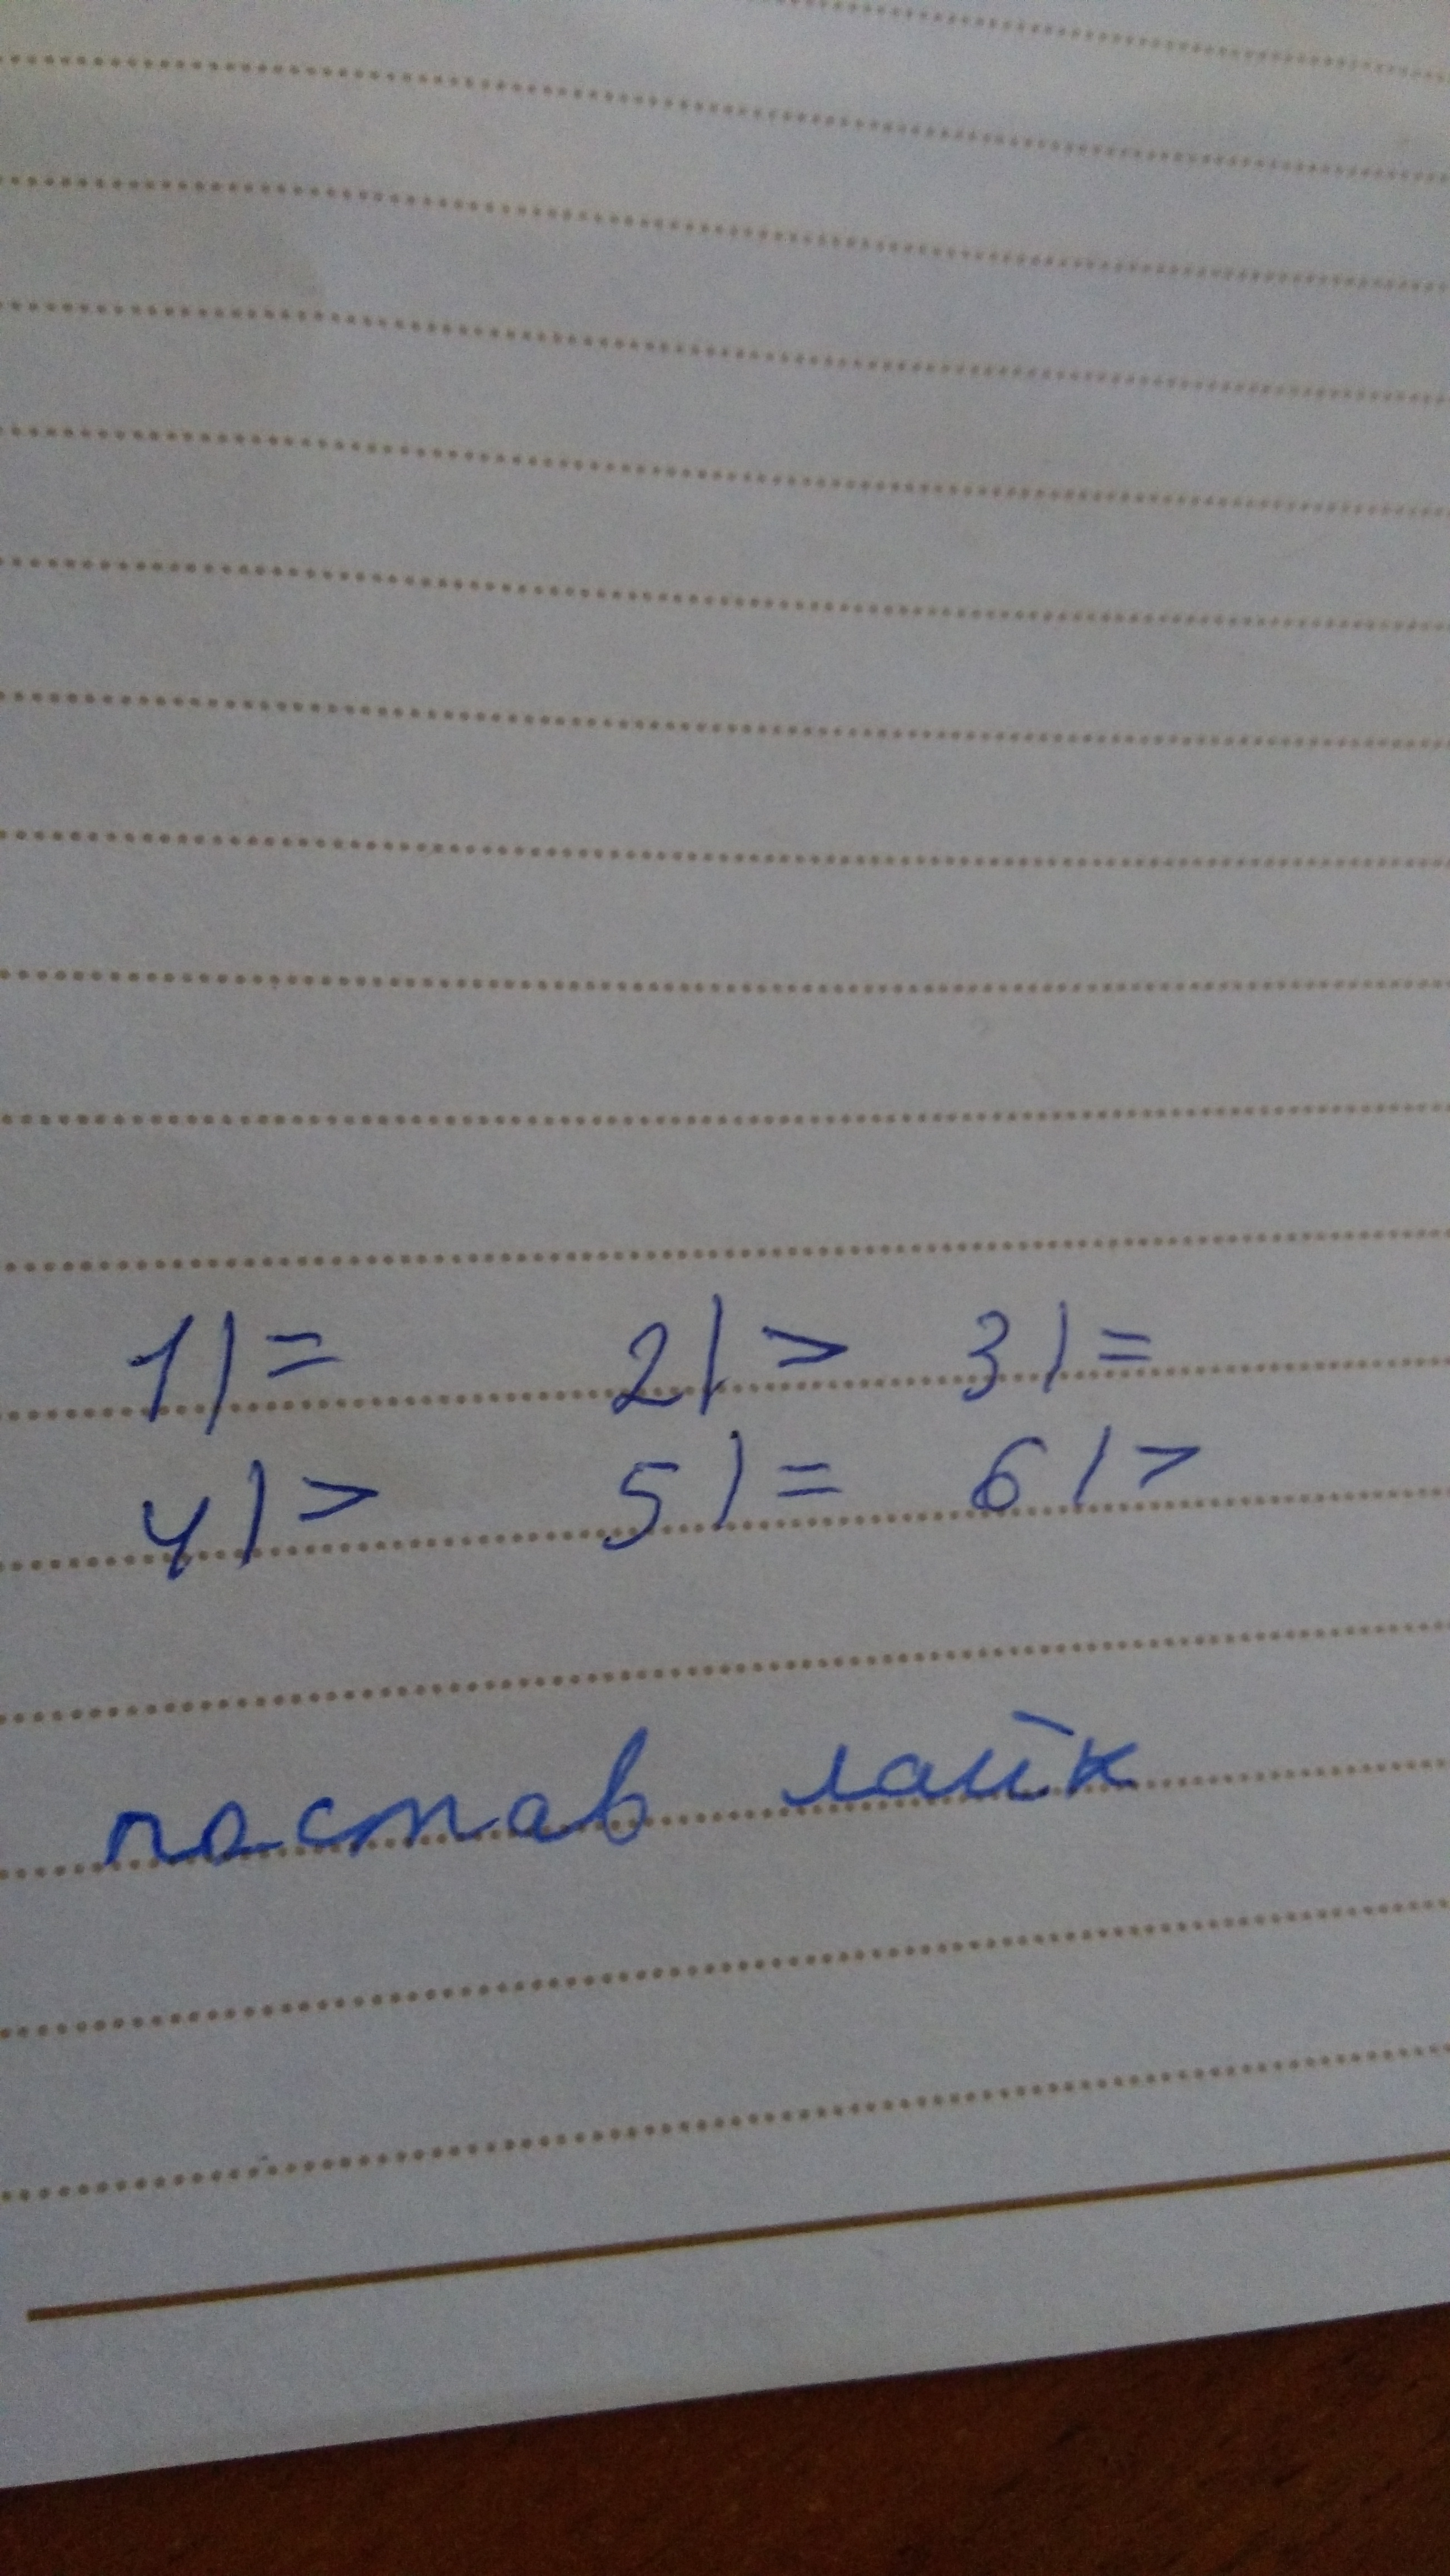 1) = 2) > 3) =
4) > 5) = 6) >
постав лайк